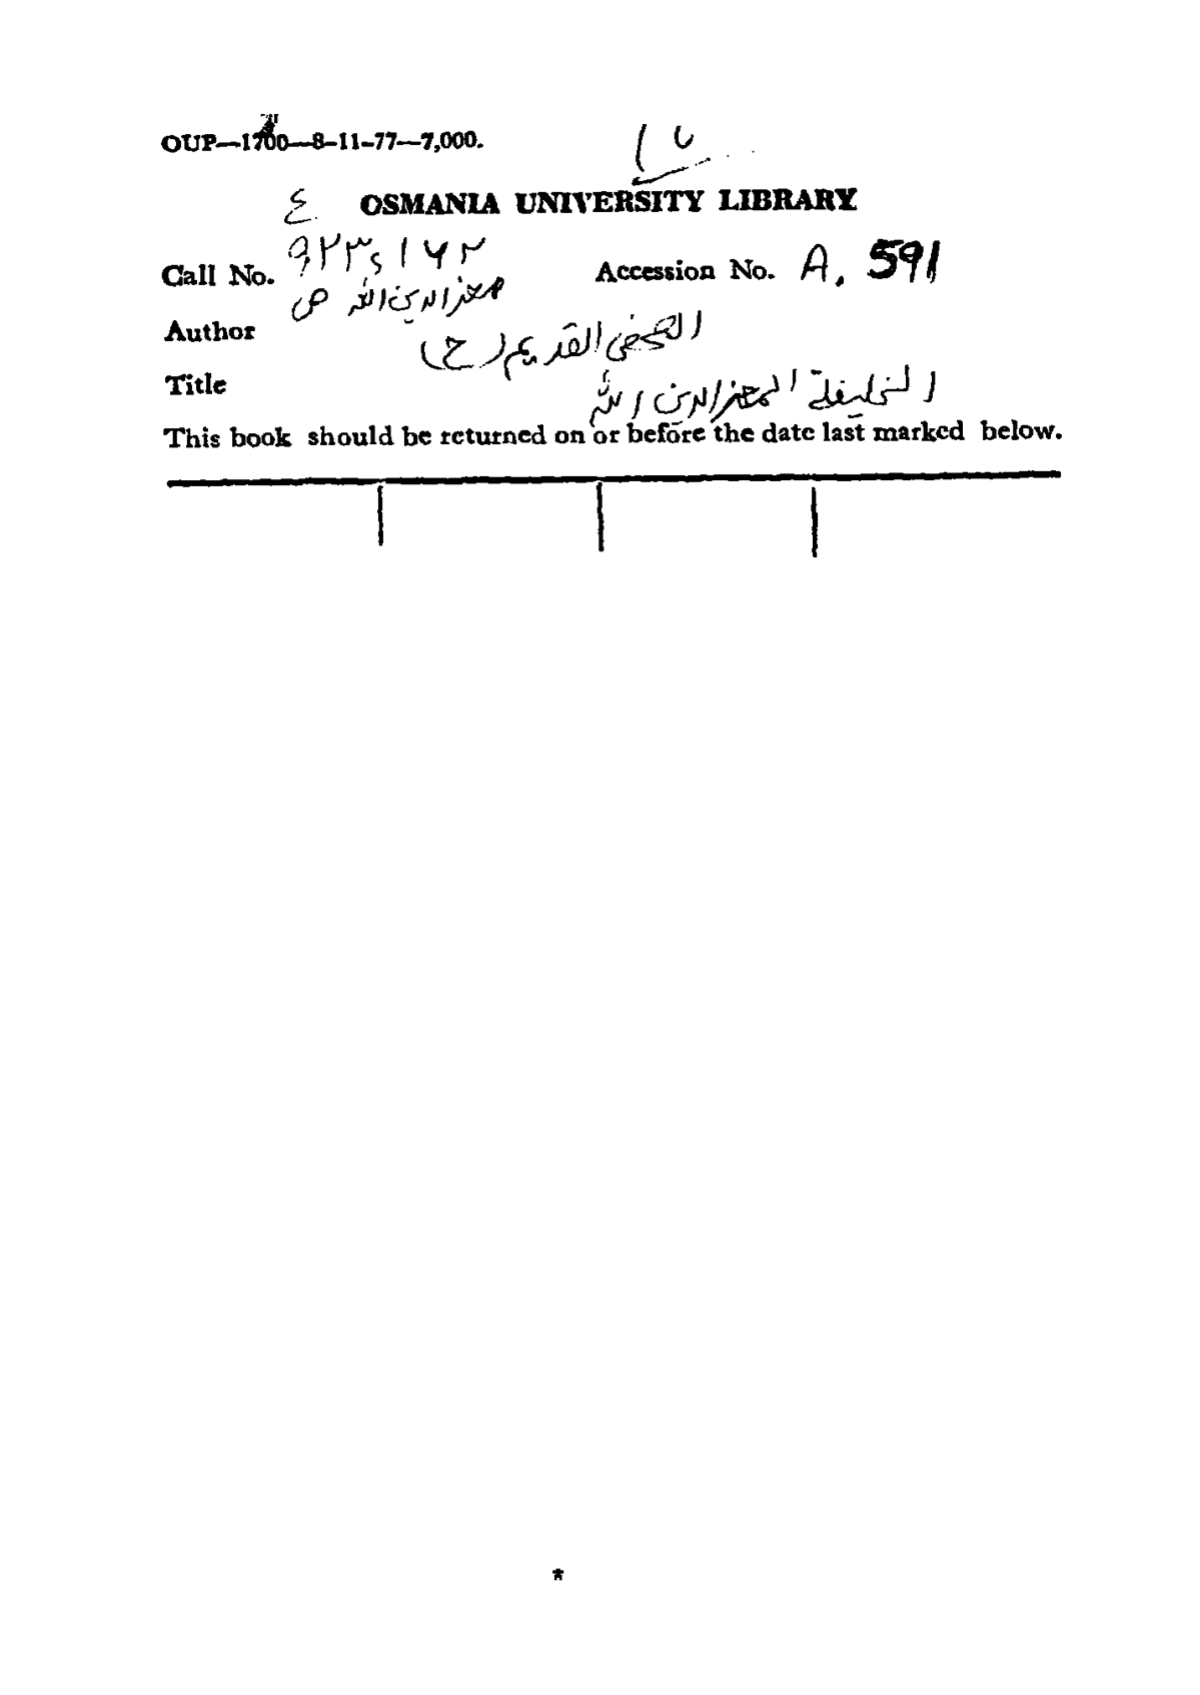 OUP—1700—8-11-77—7,000.
OSMANIA UNIVERSITY LIBRARY
ع
Call No. ۹۲۳٫۱۶۲ Accession No. A. 591
معز الدين الله ص
Author القديم (ح)
Title الخليفة المعز الدين الله
This book should be returned on or before the date last marked below.
*